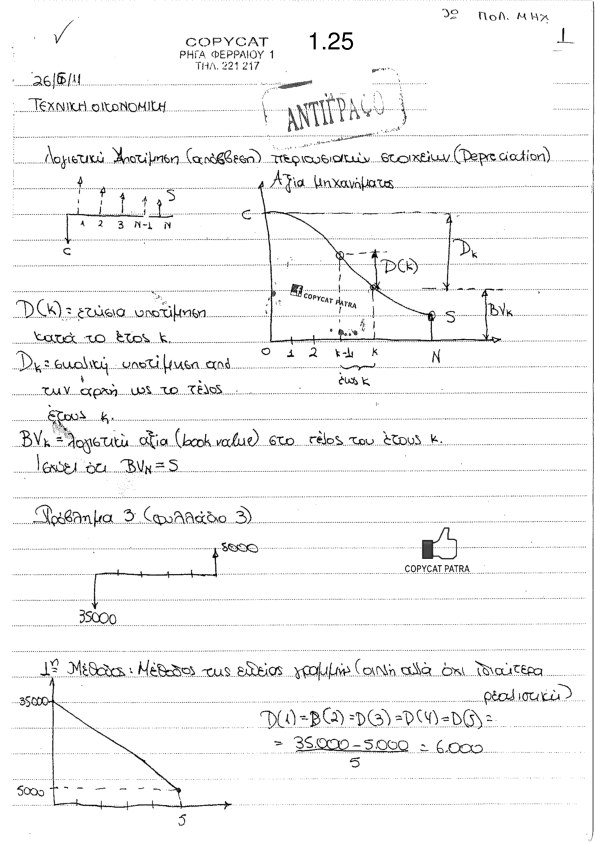 3ο ΠΟΛ. ΜΗΧ
1
COPYCAT
ΡΗΓΑ ΦΕΡΡΑΙΟΥ 1
ΤΗΛ. 221 217
1.25
ΑΝΤΙΓΡΑΦΟ
26/5/11
ΤΕΧΝΙΚΗ ΟΙΚΟΝΟΜΙΚΗ
Λογιστική Υποτίμηση (απόσβεση) περιουσιακών στοιχείων (Depreciation)
Αξία μηχανήματος
S
1 2 3 N-1 N
C
C
D(k)
Dk
BVk
S
COPYCAT PATRA
0 1 2 k-1 k N
έτος k
D(k) = ετήσια υποτίμηση
κατά το έτος k.
Dk = συνολική υποτίμηση από
την αρχή ως το τέλος
έτους k.
BVk = λογιστική αξία (book value) στο τέλος του έτους k.
Ισχύει ότι BVN = S
Πρόβλημα 3 (φυλλάδιο 3)
5000
35000
COPYCAT PATRA
1η Μέθοδος: Μέθοδος της ευθείας γραμμής (απλή αλλά όχι ιδιαίτερα
ρεαλιστική)
35000
5000
5
D(1) = D(2) = D(3) = D(4) = D(5) =
= 35.000 - 5.000 / 5 = 6.000